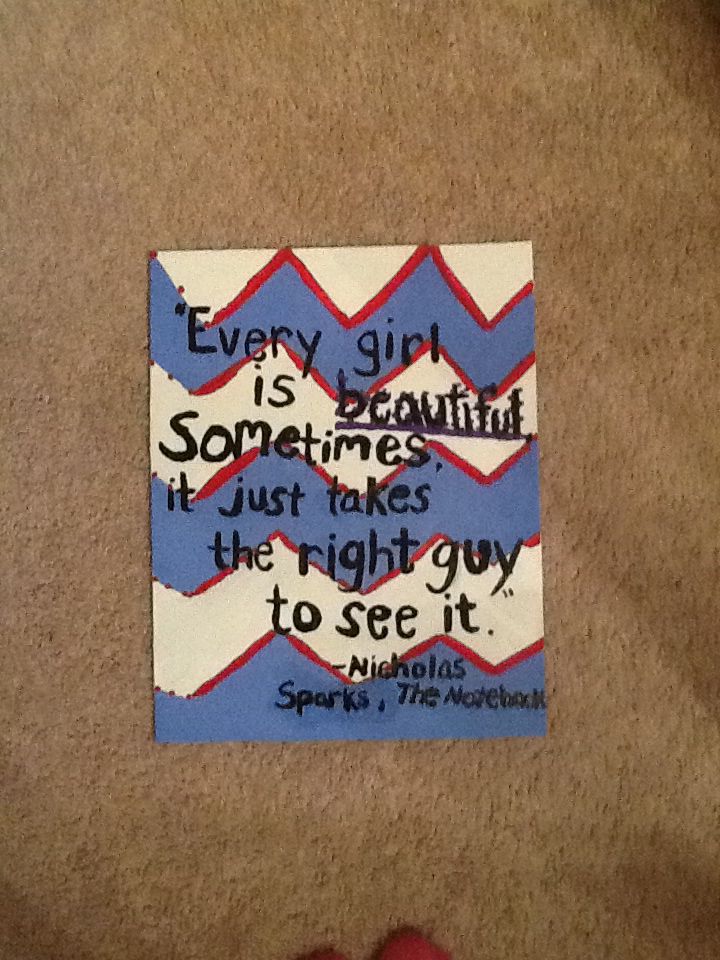 "Every girl
is beautiful.
Sometimes,
it just takes
the right guy
to see it."
-Nicholas
Sparks, The Notebook